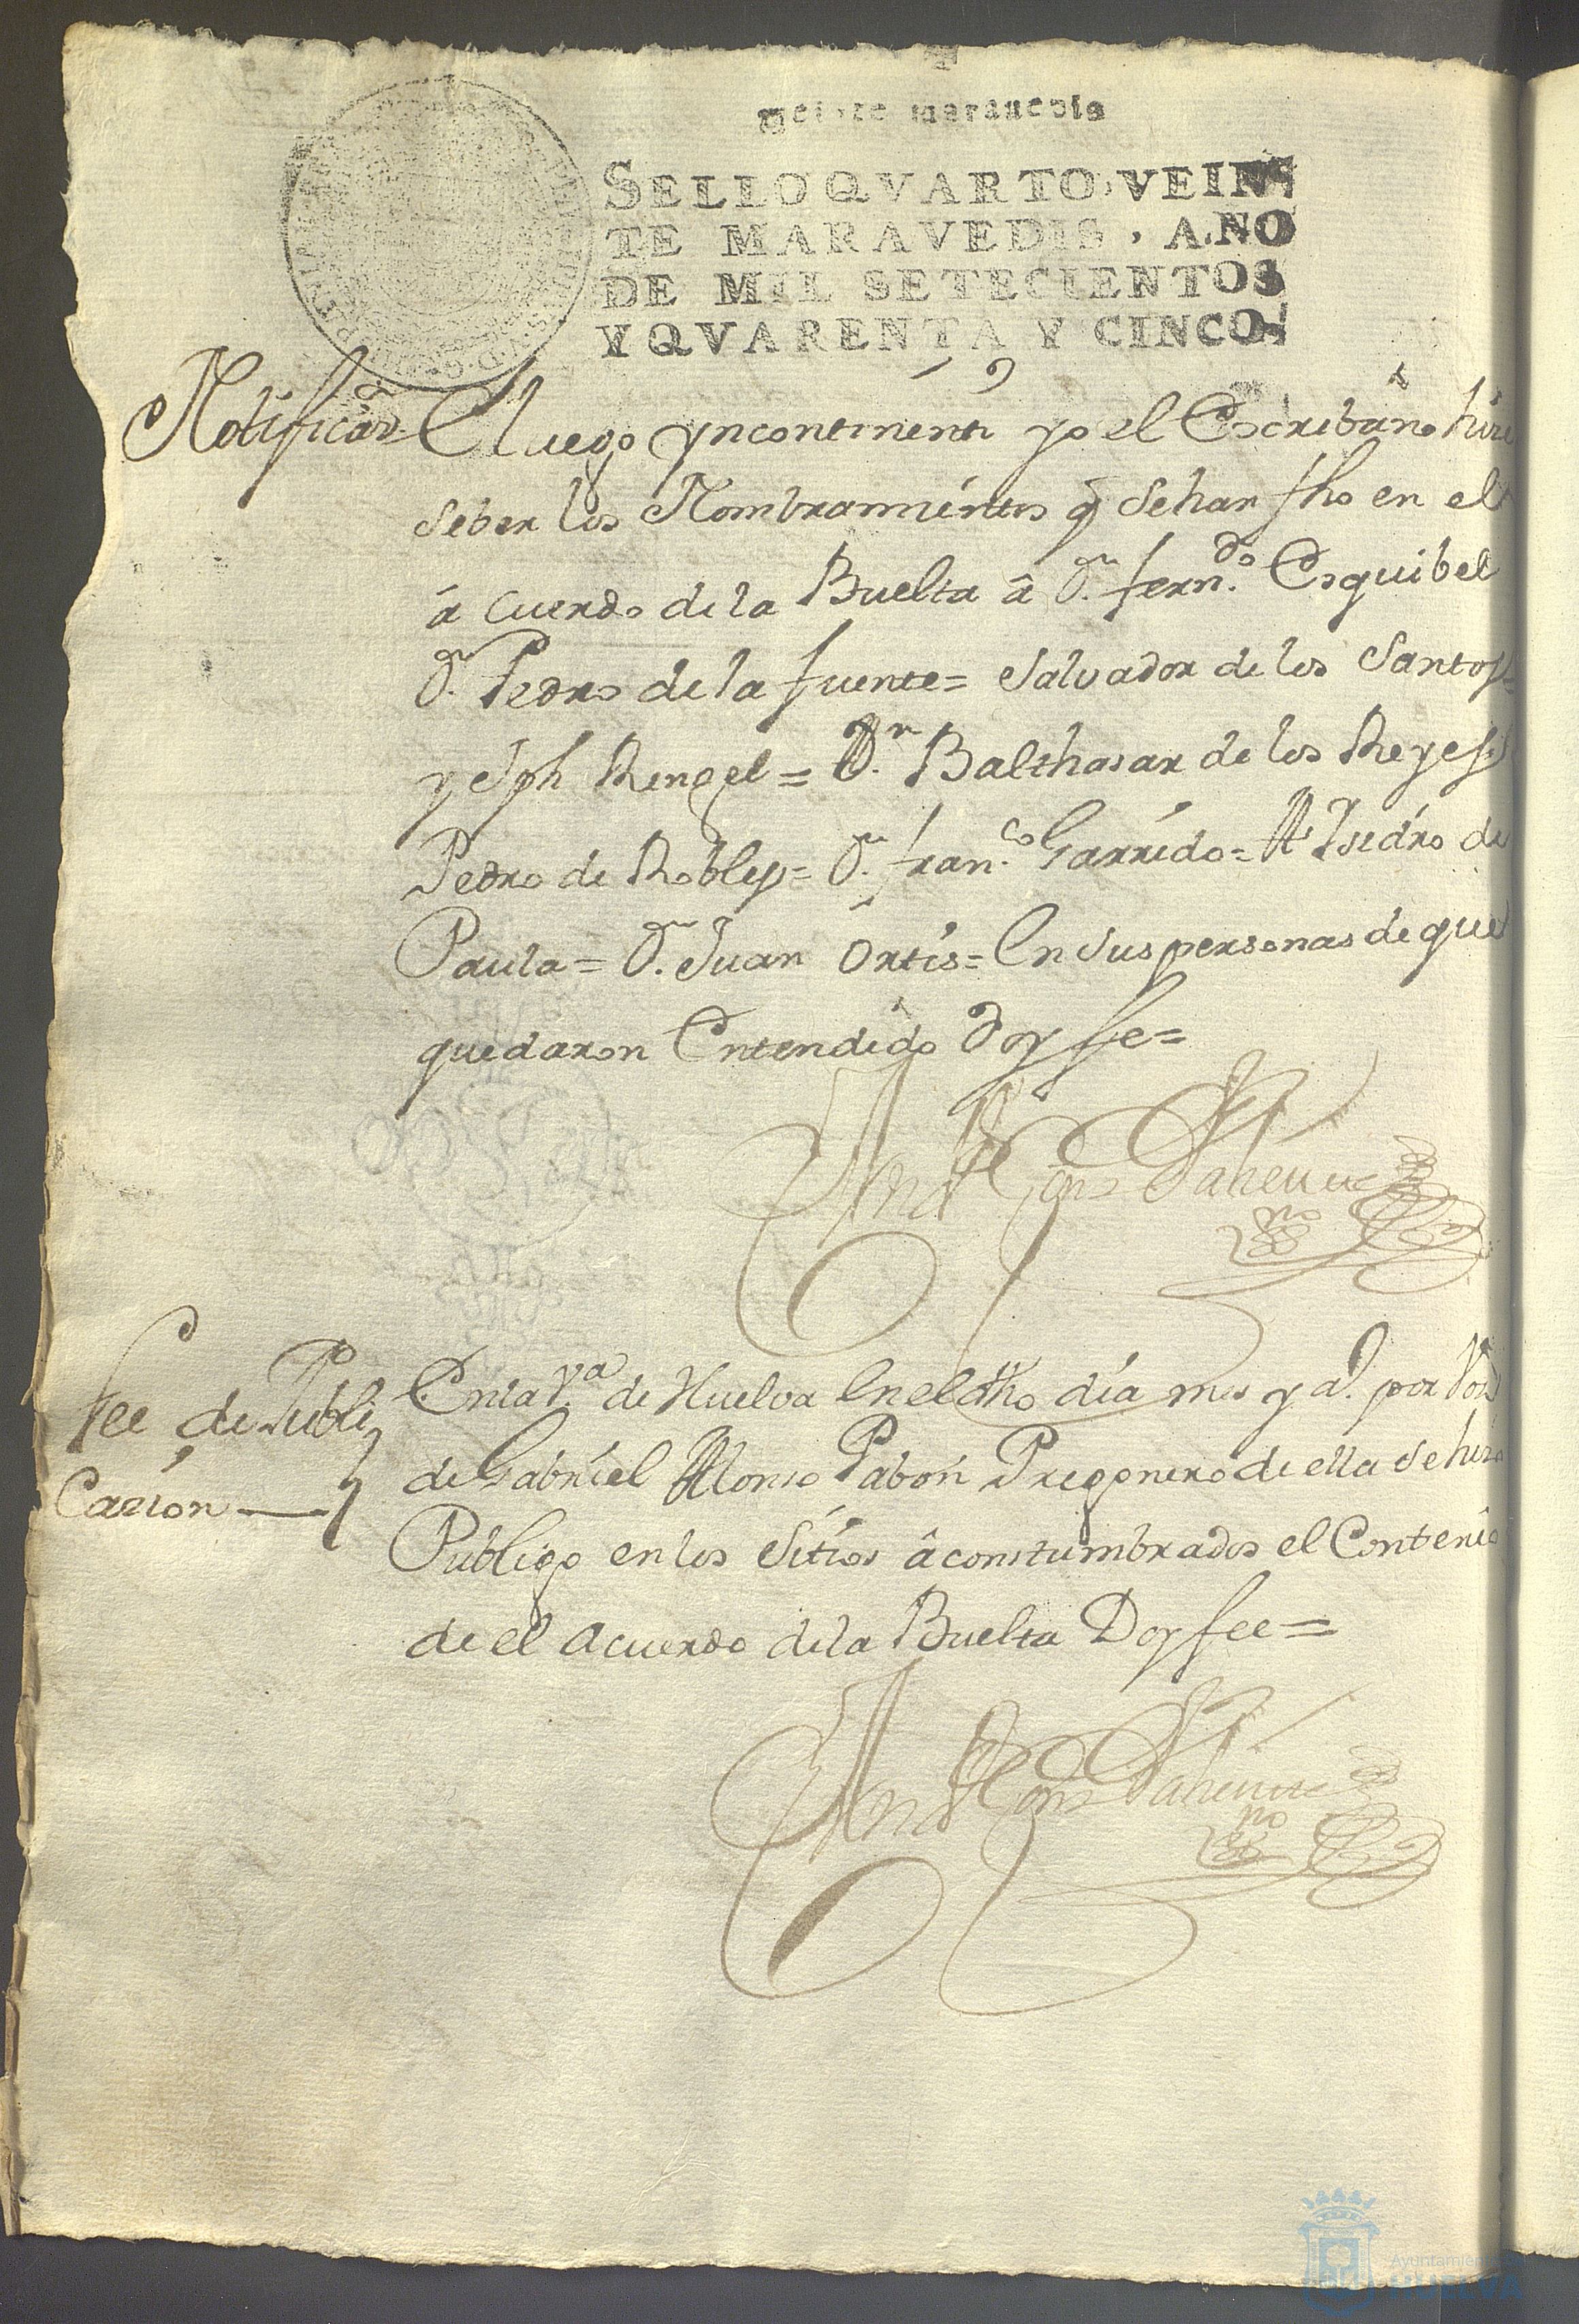 Veinte maravedis
SELLO QVARTO, VEIN
TE MARAVEDIS, AÑO
DE MIL SETECIENTOS
Y QVARENTA Y CINCO.
Notificaon= E luego yncontinenti yo el Escribano hize
seber los Nombramientos q̃ sehan fho en el
á cuerdo de la Buelta â Dn. ferndo. Esquibel
Dn. Pedro de la fuente= Salvador de los Santos=
y Jph Rengel= Dn. Balthasar de los Reyes
Pedro de Robles= Dn. franco. Garrido= Isidro de
Paula= Dn. Juan Ortis= En sus personas de que
quedaron Entendido Doy fe=
Fee de Publi
Cazion
En la va. de Huelva En el dho día mes y a. por Voz
de Gabriel Alonso Pabón Pregonero de ella se hizo
Publico en los Sitios âconstumbrados el Contenido
de el Acuerdo de la Buelta Doy fee=
Ayuntamiento de
HUELVA